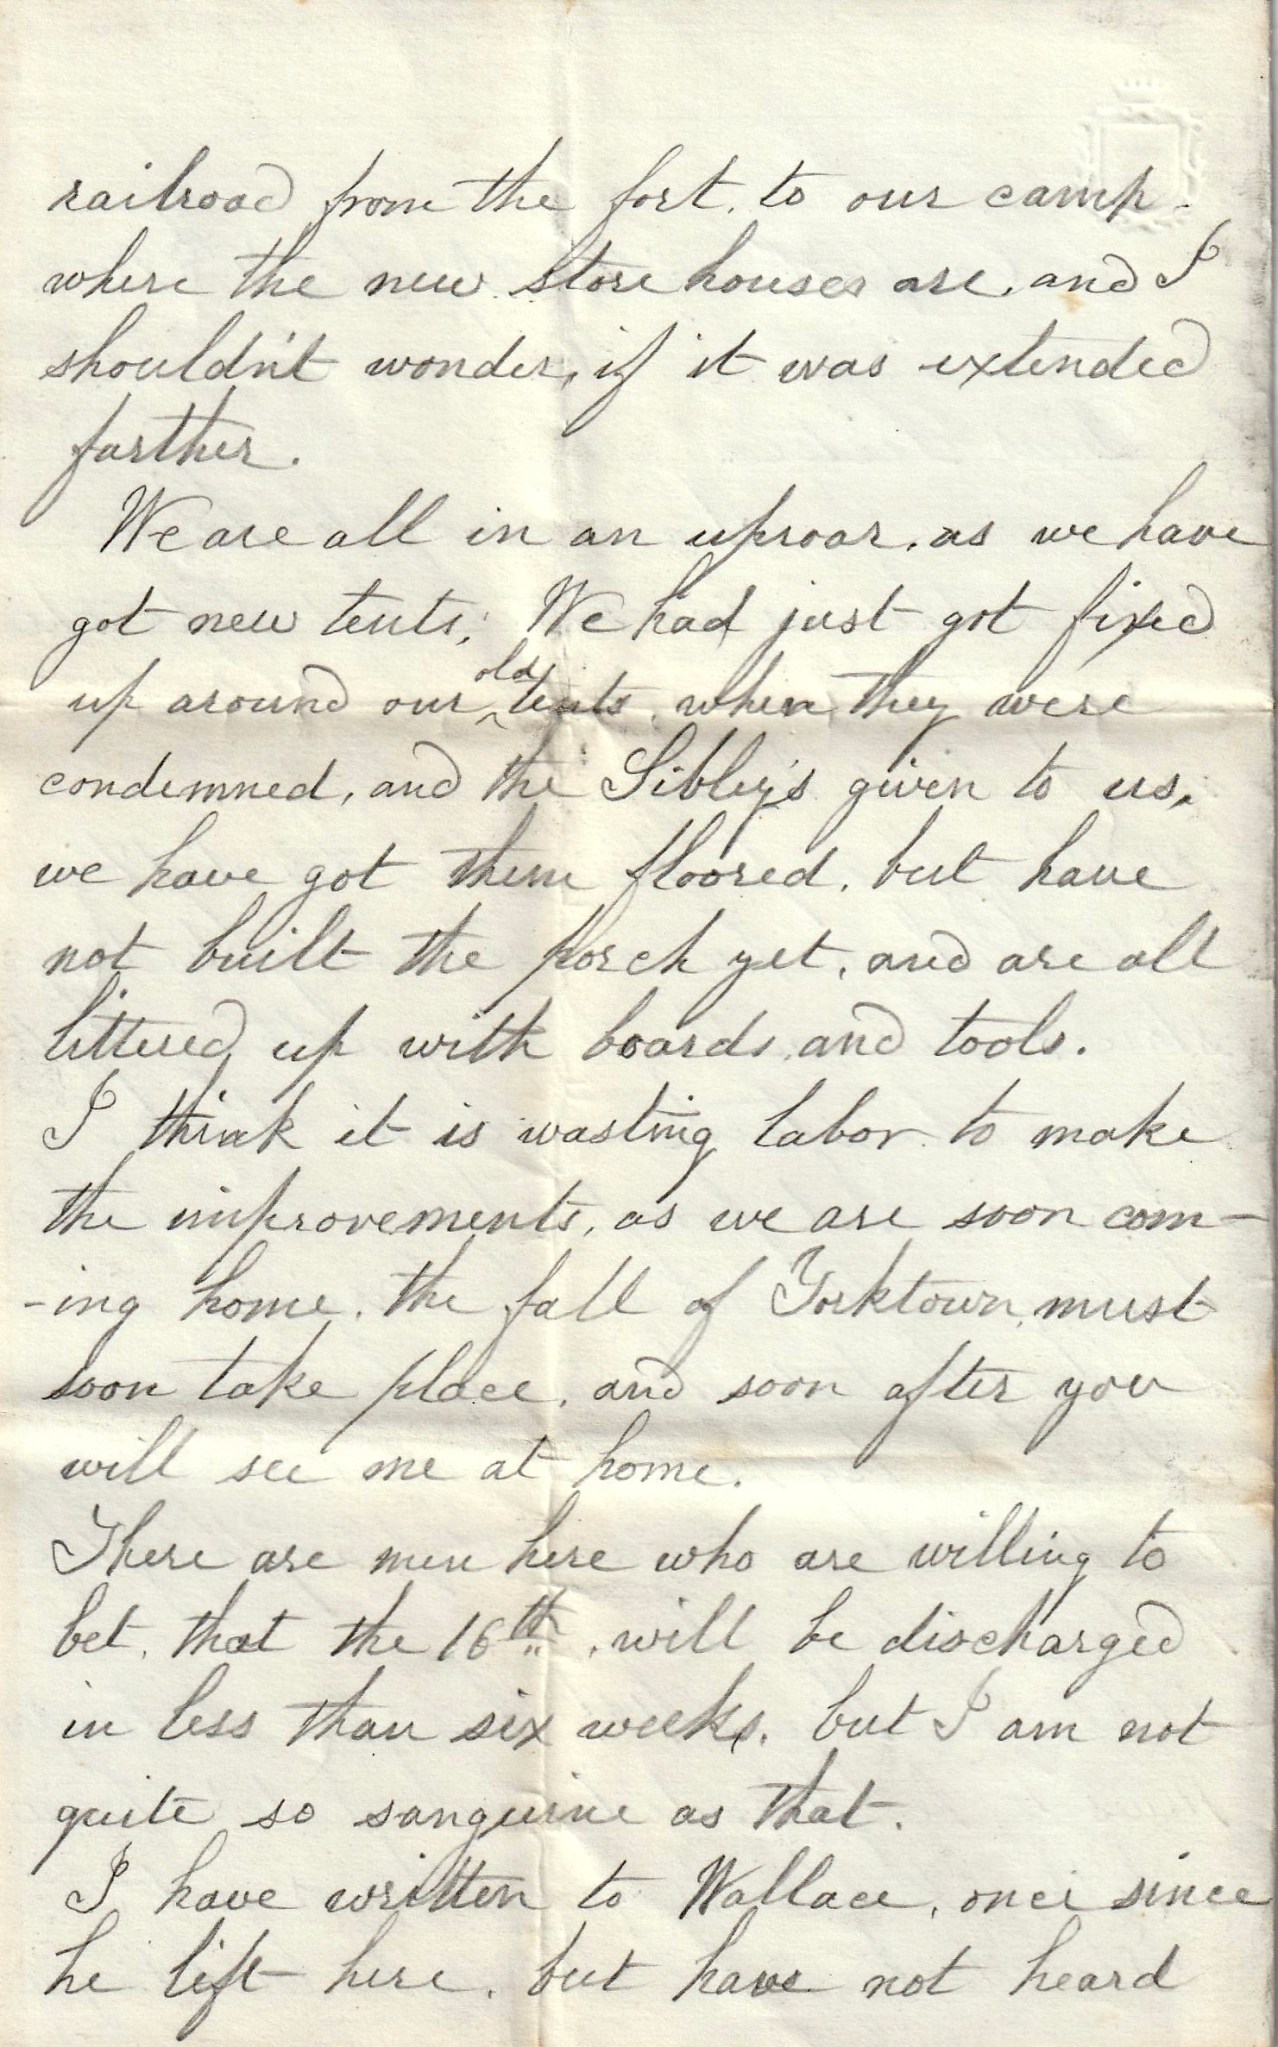 railroad from the fort, to our camp.
where the new store houses are, and I
shouldn't wonder, if it was extended
farther.
We are all in an uproar, as we have
got new tents; We had just got fixed
up around our old tents, when they were
condemned, and the Sibley's given to us,
we have got them floored, but have
not built the porch yet, and are all
littered up with boards, and tools.
I think it is wasting labor to make
the improvements, as we are soon com-
-ing home. the fall of Yorktown, must
soon take place, and soon after you
will see me at home.
There are men here who are willing to
bet, that the 16th, will be discharged
in less than six weeks, but I am not
quite so sanguine as that.
I have written to Wallace, once since
he left here, but have not heard